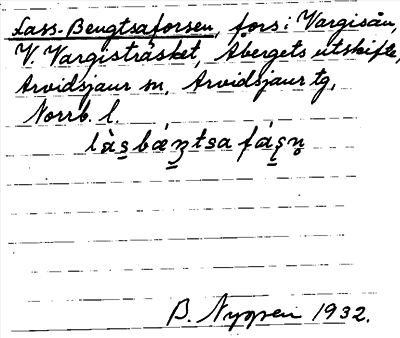 Lass-Bengtsaforsen, fors i Vargisån,
V. Vargisträsket, Abergets utskifte,
Arvidsjaur sn, Arvidsjaur tg,
Norrb. l.
B. Nygren 1932.